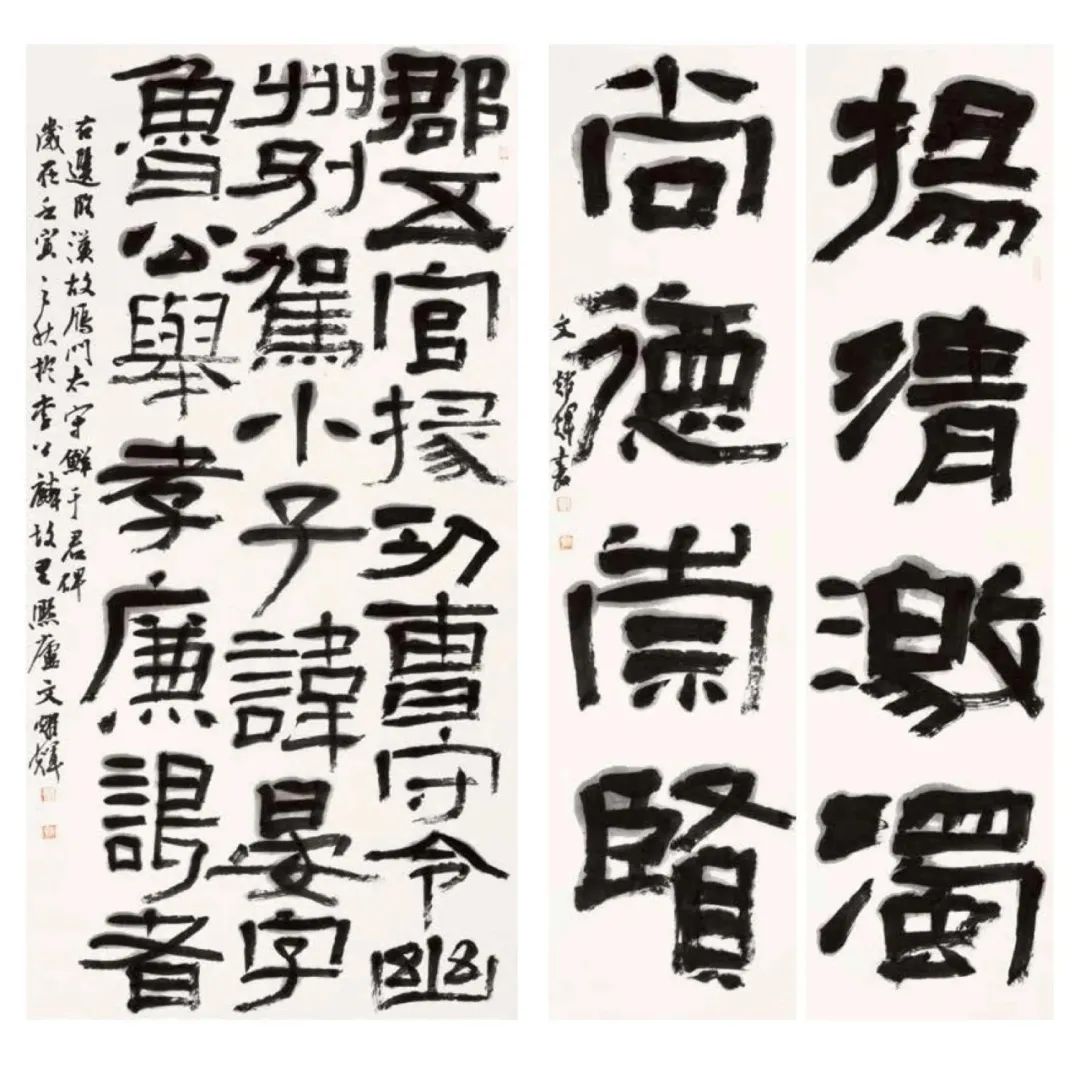 揚清激濁
尚德崇賢
文耀輝書
郡五官掾功曹守令幽
州別駕小子諱晏字
魯公舉孝廉謁者
右選臨漢故雁門太守鮮于君碑
歲在壬寅之秋於李公麟故里熙廬文耀輝